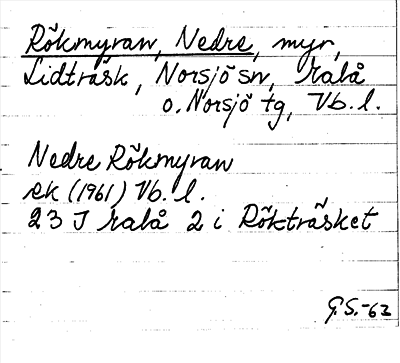 Rökmyran, Nedre, myr,
Lidträsk, Norsjö sn, Malå
o. Norsjö tg, Vb. l.
Nedre Rökmyran
ek (1961) Vb. l.
23 J Malå 2 i Rökträsket
G.S.-62